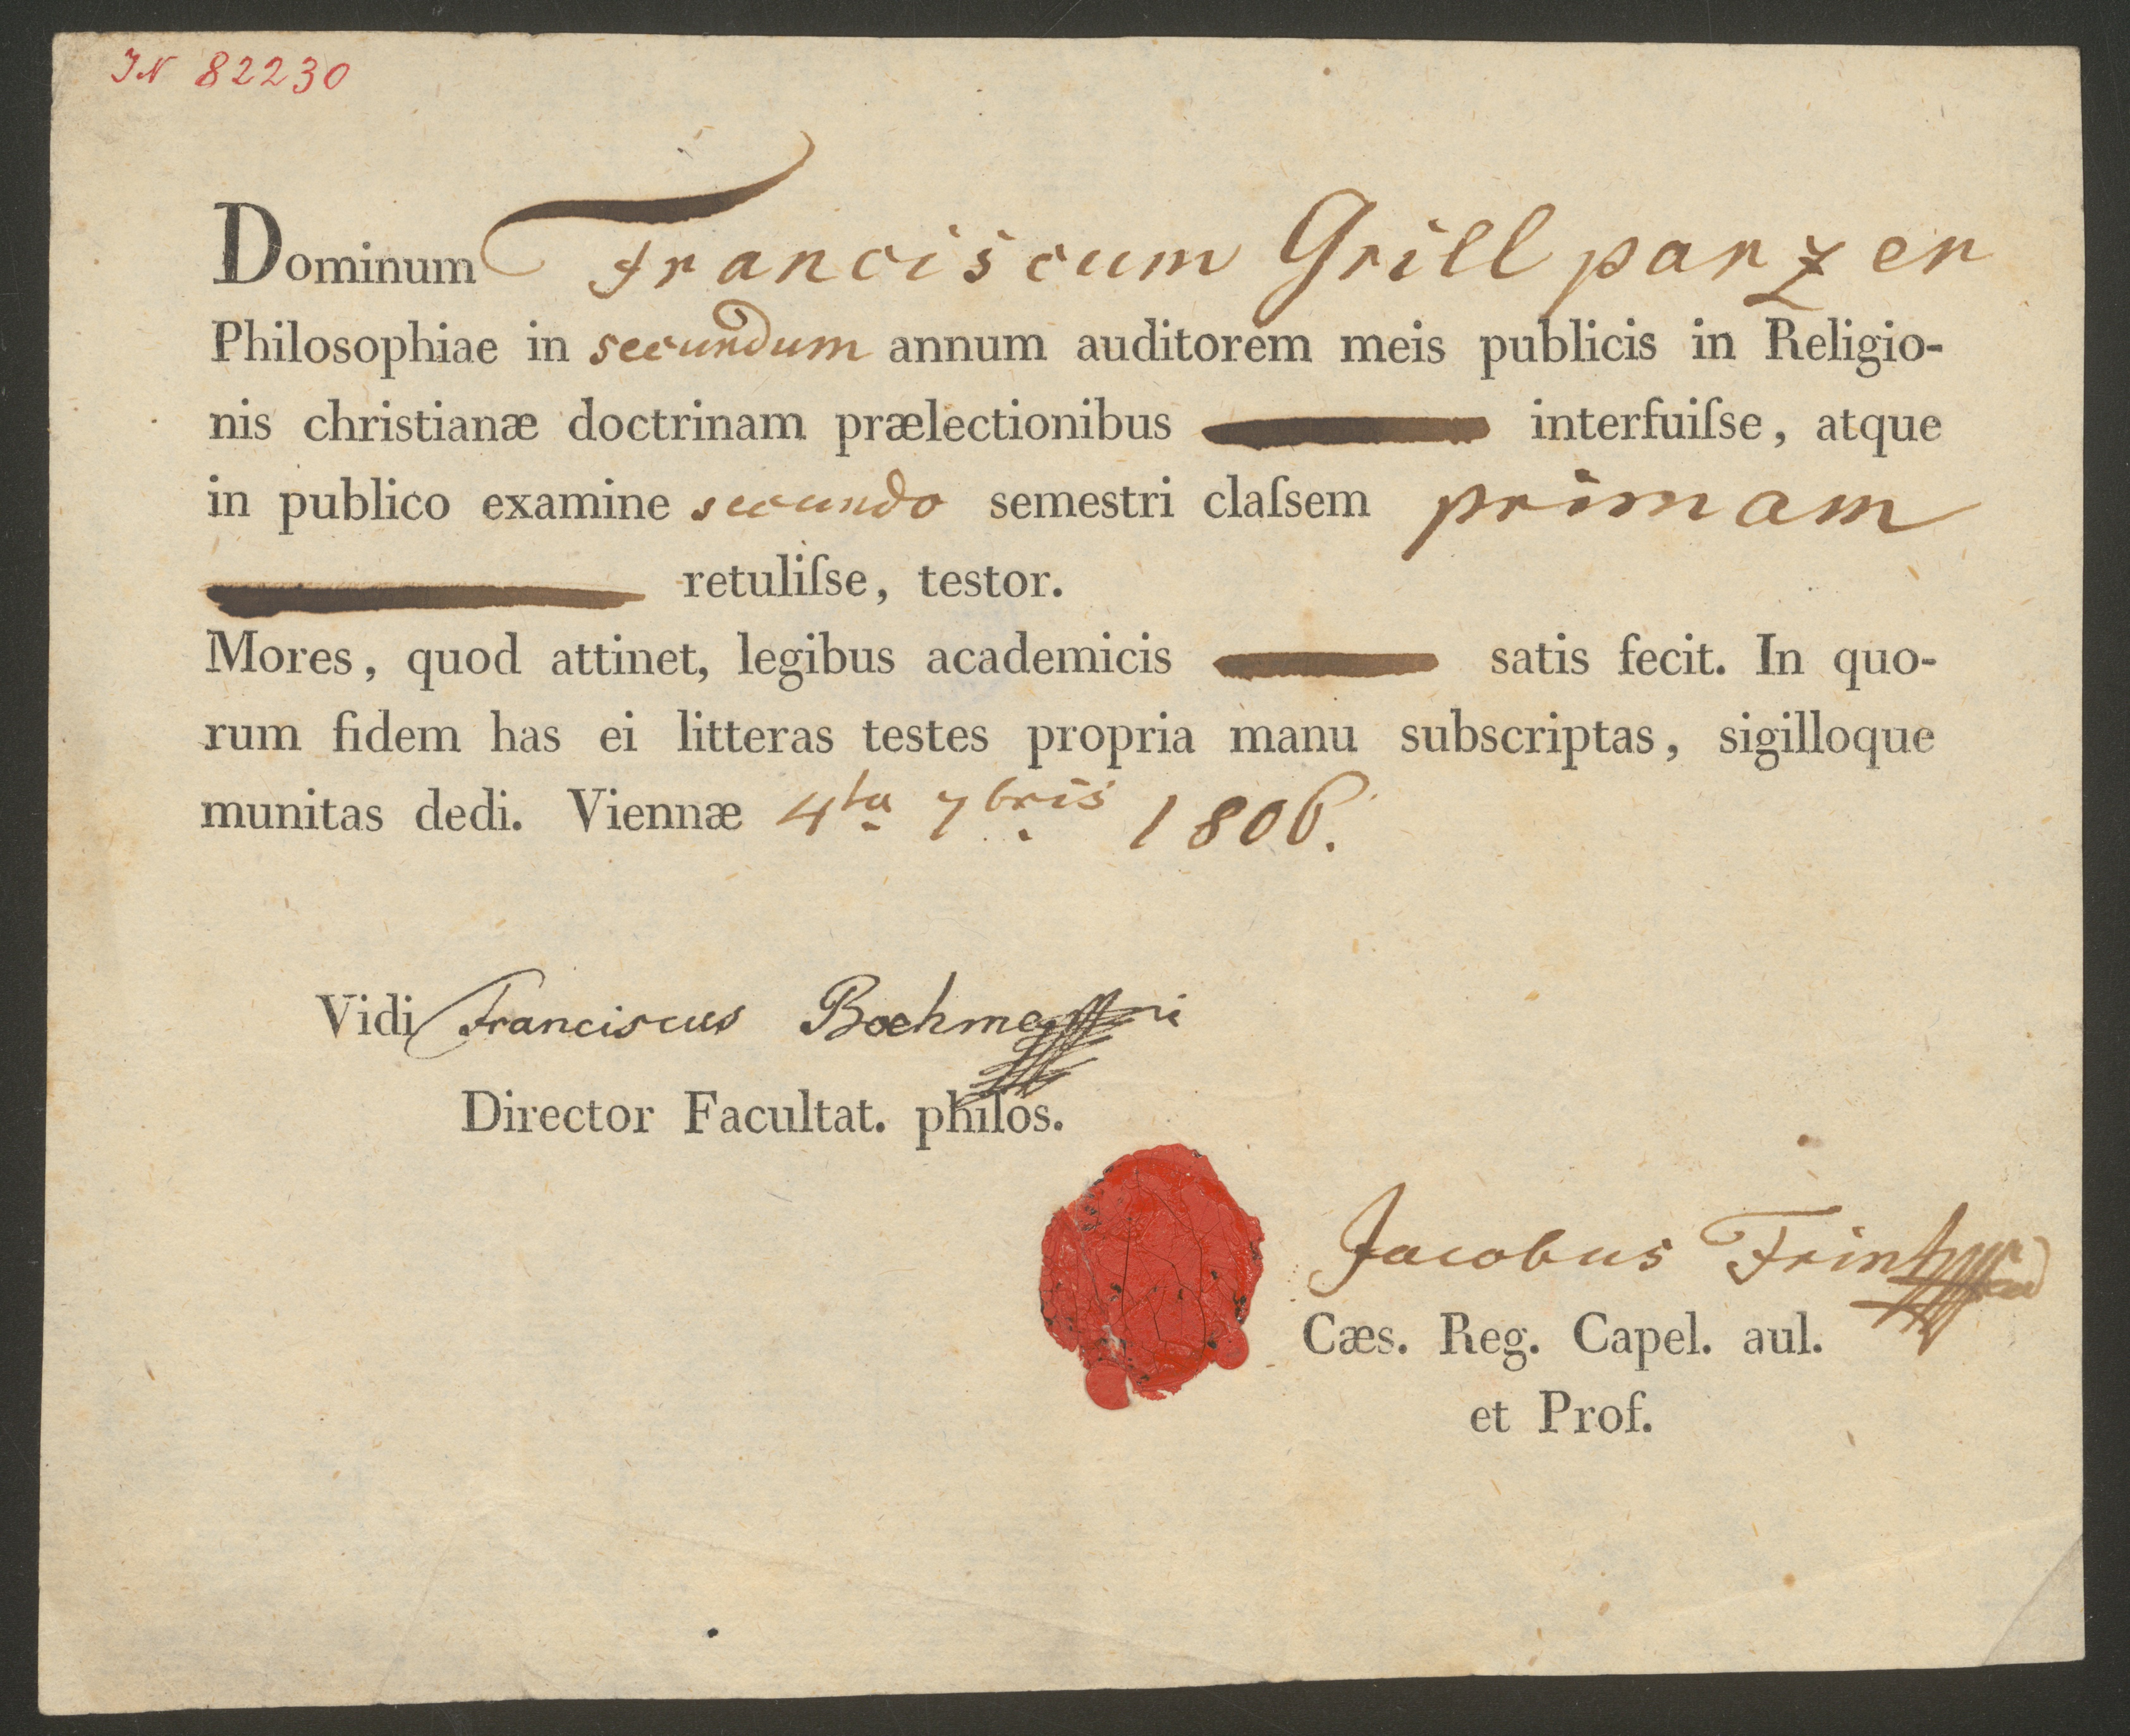 IN 82230
Dominum Franciscum Grillparzer
Philosophiae in secundum annum auditorem meis publicis in Religio-
nis christianæ doctrinam prælectionibus interfuiſse, atque
in publico examine secundo semestri claſsem primam
retuliſse, testor.
Mores, quod attinet, legibus academicis satis fecit. In quo-
rum fidem has ei litteras testes propria manu subscriptas, sigilloque
munitas dedi. Viennæ 4ta 7bris 1806.
Vidi Franciscus
Director Facultat. philos.
Jacobus Frint
Cæs. Reg. Capel. aul.
et Prof.